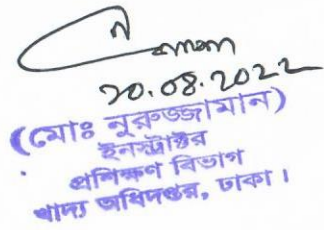 ২০.০৪.২০২২
(মোঃ নুরুজ্জামান)
ইনস্ট্রাক্টর
প্রশিক্ষণ বিভাগ
খাদ্য অধিদপ্তর, ঢাকা।